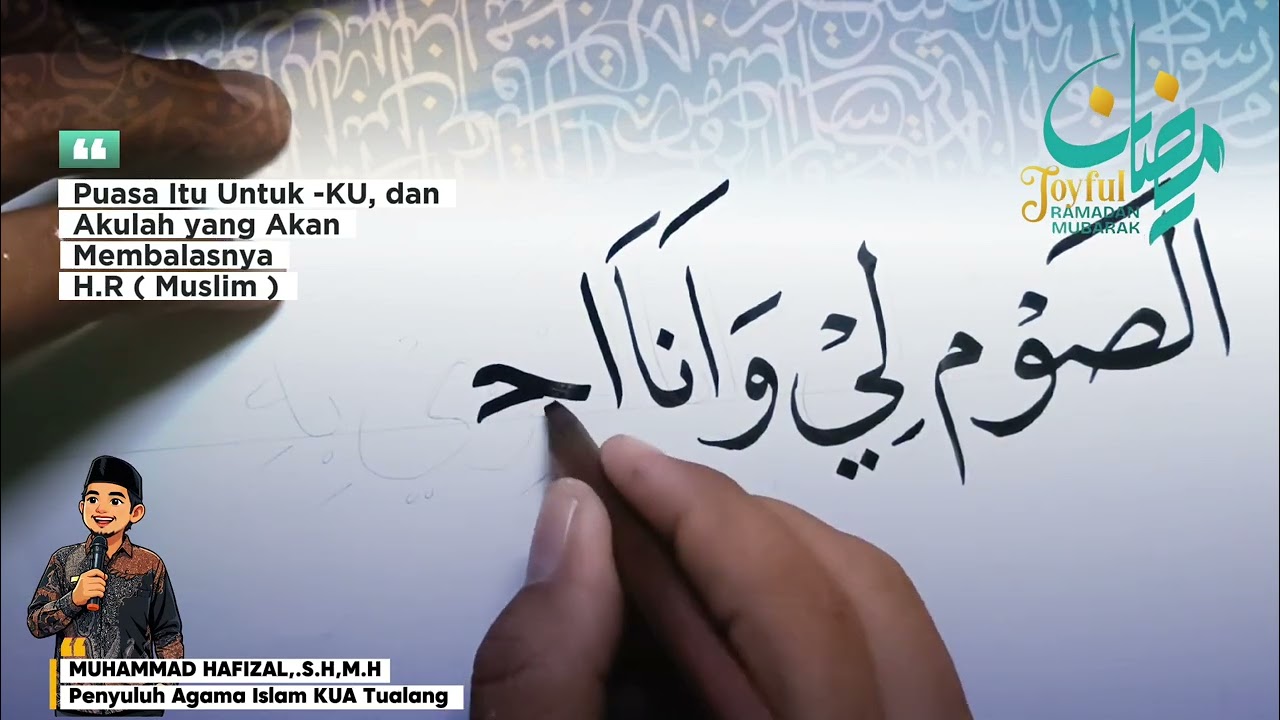 Puasa Itu Untuk -KU, dan
Akulah yang Akan
Membalasnya
H.R ( Muslim )
رمضان
Joyful
RAMADAN
MUBARAK
الصَوْم لِيْ وَانَا اَجـ
MUHAMMAD HAFIZAL,.S.H,M.H
Penyuluh Agama Islam KUA Tualang